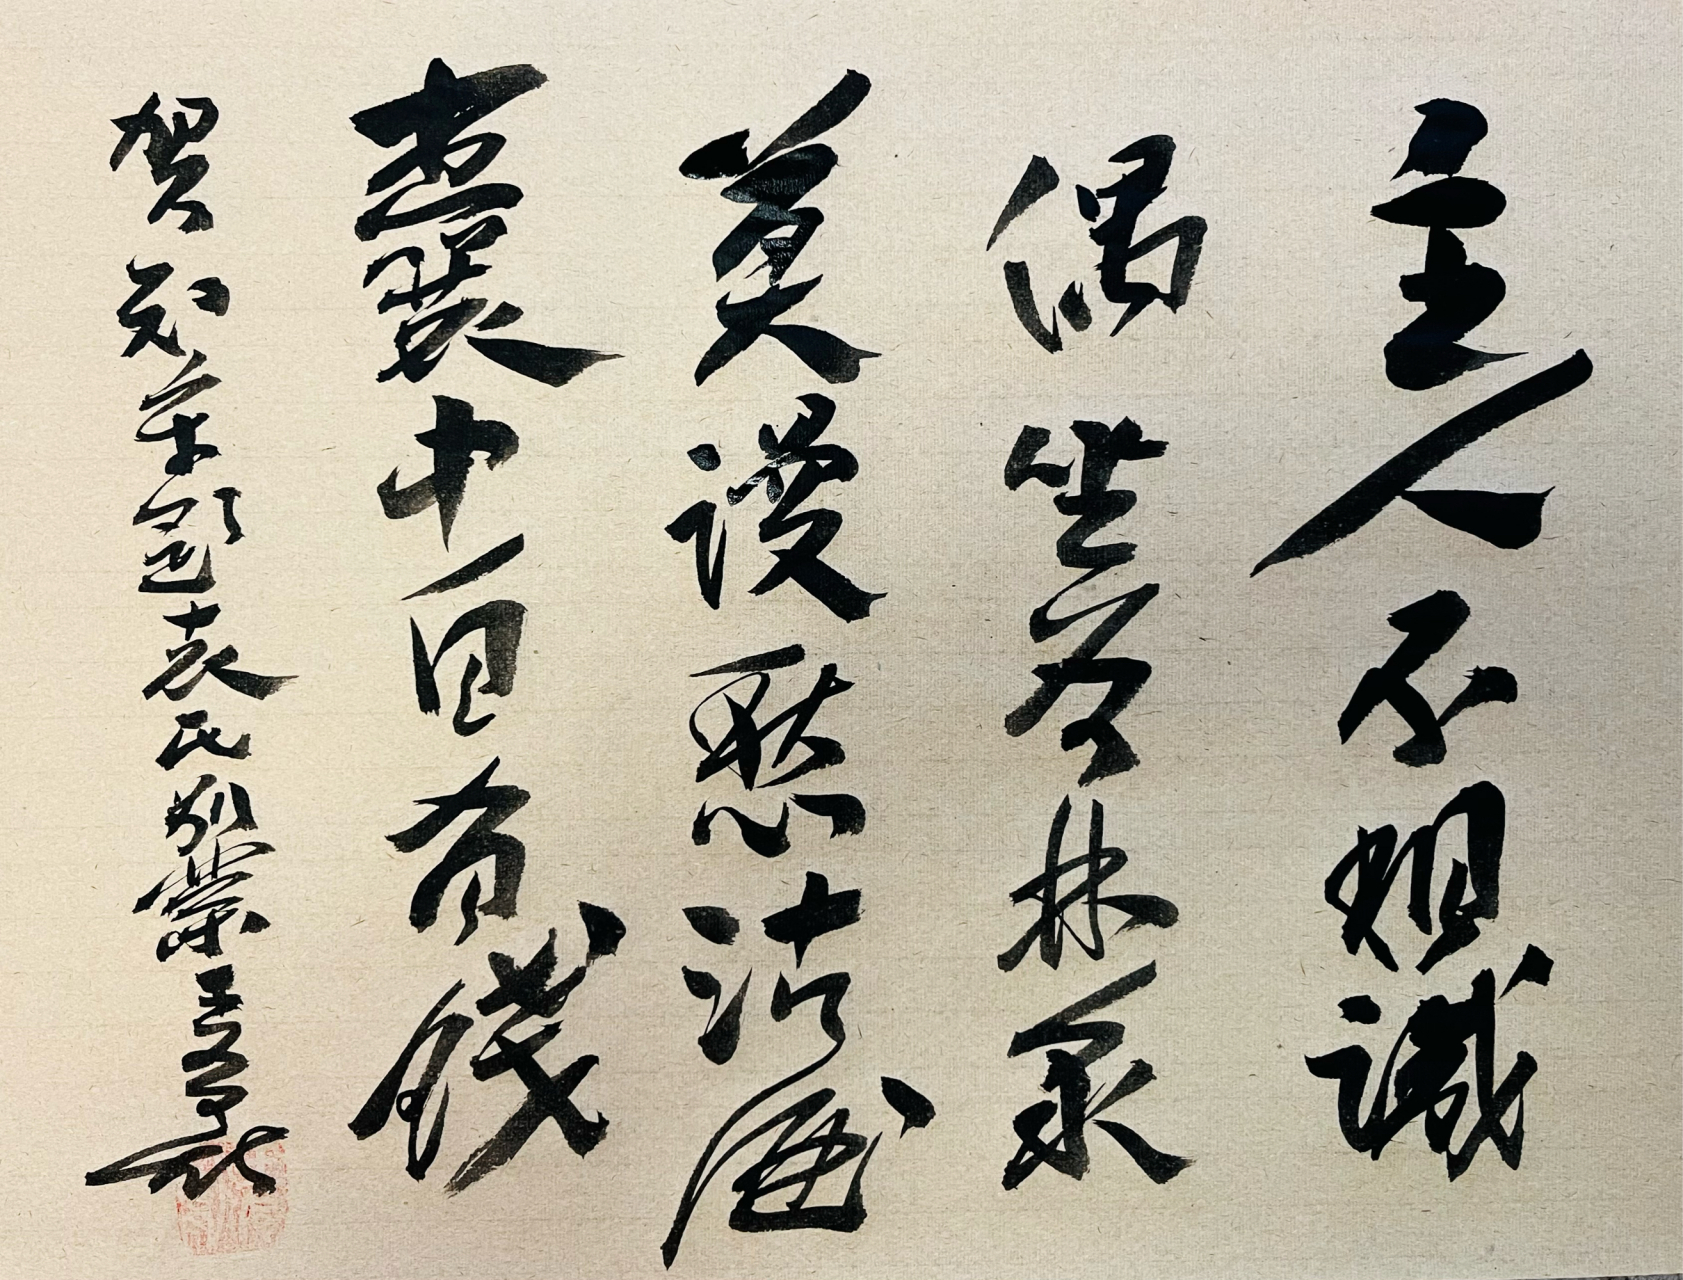 主人不相識
偶坐為林泉
莫謾愁沽酒
囊中自有錢
賀知章題袁氏別業